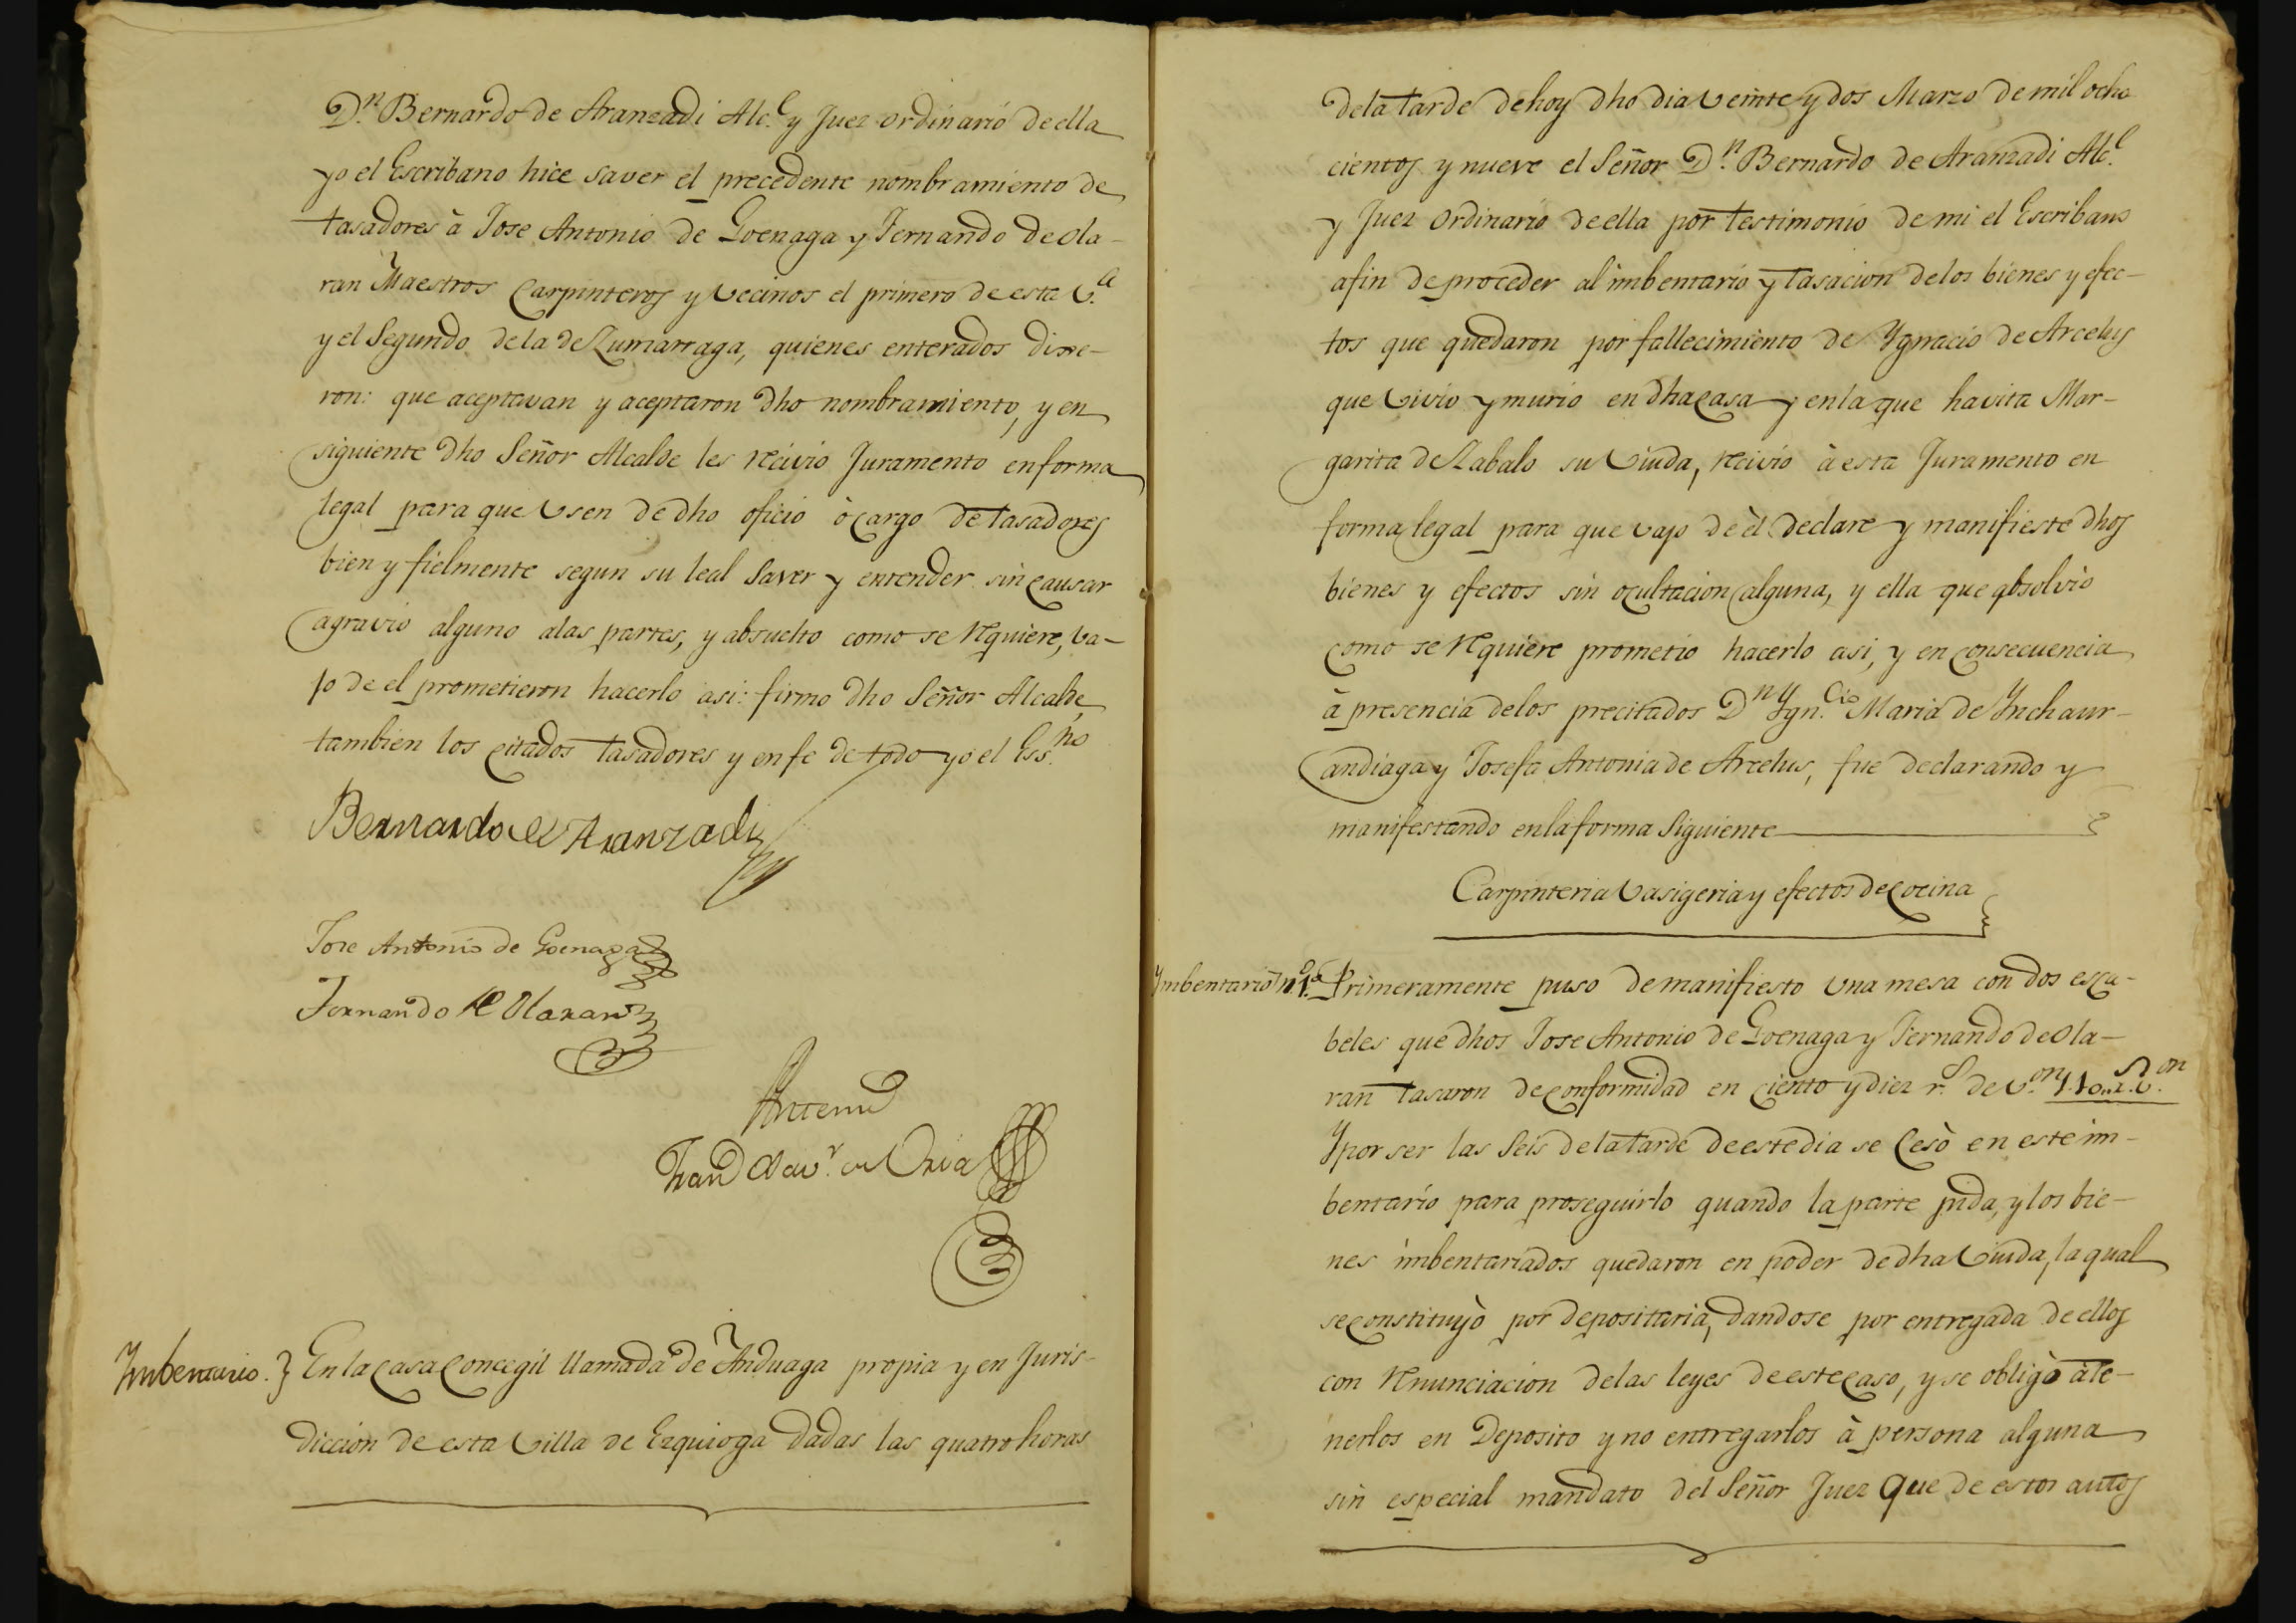 Dn. Bernardo de Aranzadi Alc.e y Juez ordinario de ella
yo el Escribano hice saver el precedente nombramiento de
tasadores à Jose Antonio de Goenaga y Fernando de Ola-
ran Maestros Carpinteros y Vecinos el primero de esta V.a
y el Segundo de la de Zumarraga, quienes enterados dixe-
ron: que aceptavan y aceptaron dho nombramiento, y en
siguiente dho Señor Alcalde les recivio Juramento en forma
legal para que Usen de dho oficio ò cargo de tasadores
bien y fielmente segun su leal Saver y entender sin causar
agravio alguno a las partes, y absuelto como se requiere, va-
jo de el prometieron hacerlo asi: firmo dho Señor Alcalde,
tambien los citados tasadores y en fe de todo yo el Ess.no
Bernardo de Aranzadi
Jose Antonio de Goenaga
Fernando de Olaran
Antemi
Imbentario. } En la Casa Concegil llamada de Anduaga propia y en Juris-
diccion de esta Villa de Ezquioga dadas las quatro horas
de la tarde de hoy dho dia veinte y dos Marzo de mil ocho
cientos y nueve el Señor Dn. Bernardo de Aranzadi Alc.e
y Juez Ordinario de ella por testimonio de mi el Escribano
afin de proceder al imbentario y tasacion de los bienes y efec-
tos que quedaron por fallecimiento de Ygnacio de Arcelus
que Vivio y murio en dha casa y en la que havita Mar-
garita de Zabalo su Viuda, recivio à esta Juramento en
forma legal para que vajo de èl declare y manifieste dhos
bienes y efectos sin ocultacion alguna, y ella que absolvio
como se requiere prometio hacerlo asi, y en consecuencia
à presencia de los precitados Dn Ygn.cio Maria de Ynchaur-
andiaga y Josefa Antonia de Arcelus, fue declarando y
manifestando en la forma Siguiente
Carpinteria Vasigeria y efectos de Cocina
Ymbentario n.o 1.o Primeramente puso de manifiesto Una mesa con dos esca-
beles que dhos Jose Antonio de Goenaga y Fernando de Ola-
ran tasaron de conformidad en ciento y diez r.s de V.on 110 r.s V.on
Y por ser las Seis de la tarde de este dia se Cesò en este im-
bentario para proseguirlo quando la parte pida, y los bie-
nes imbentariados quedaron en poder de dha Viuda, la qual
se constituyò por depositaria, dandose por entregada de ellos
con renunciacion de las leyes de este caso, y se obligò à te-
nerlos en Deposito y no entregarlos à persona alguna
sin especial mandato del Señor Juez que de estos autos